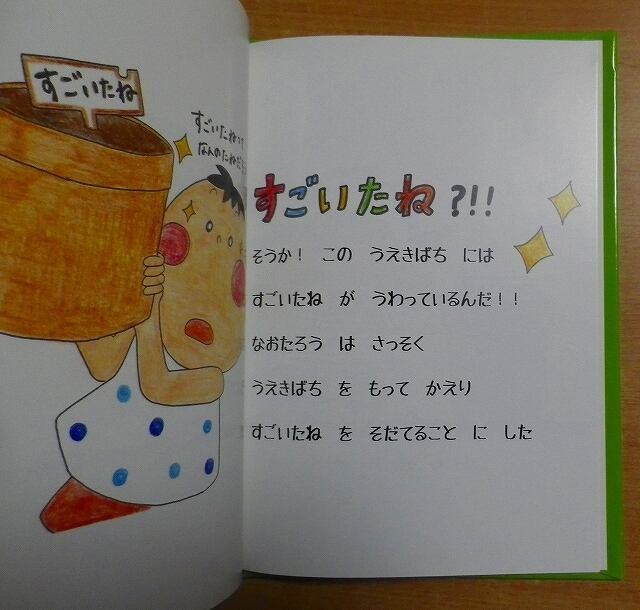 すごいたね
すごいたねって
なんのたねだ
すごいたね?!!
そうか！ この うえきばち には
すごいたね が うわっているんだ！！
なおたろう は さっそく
うえきばち を もって かえり
すごいたね を そだてること に した